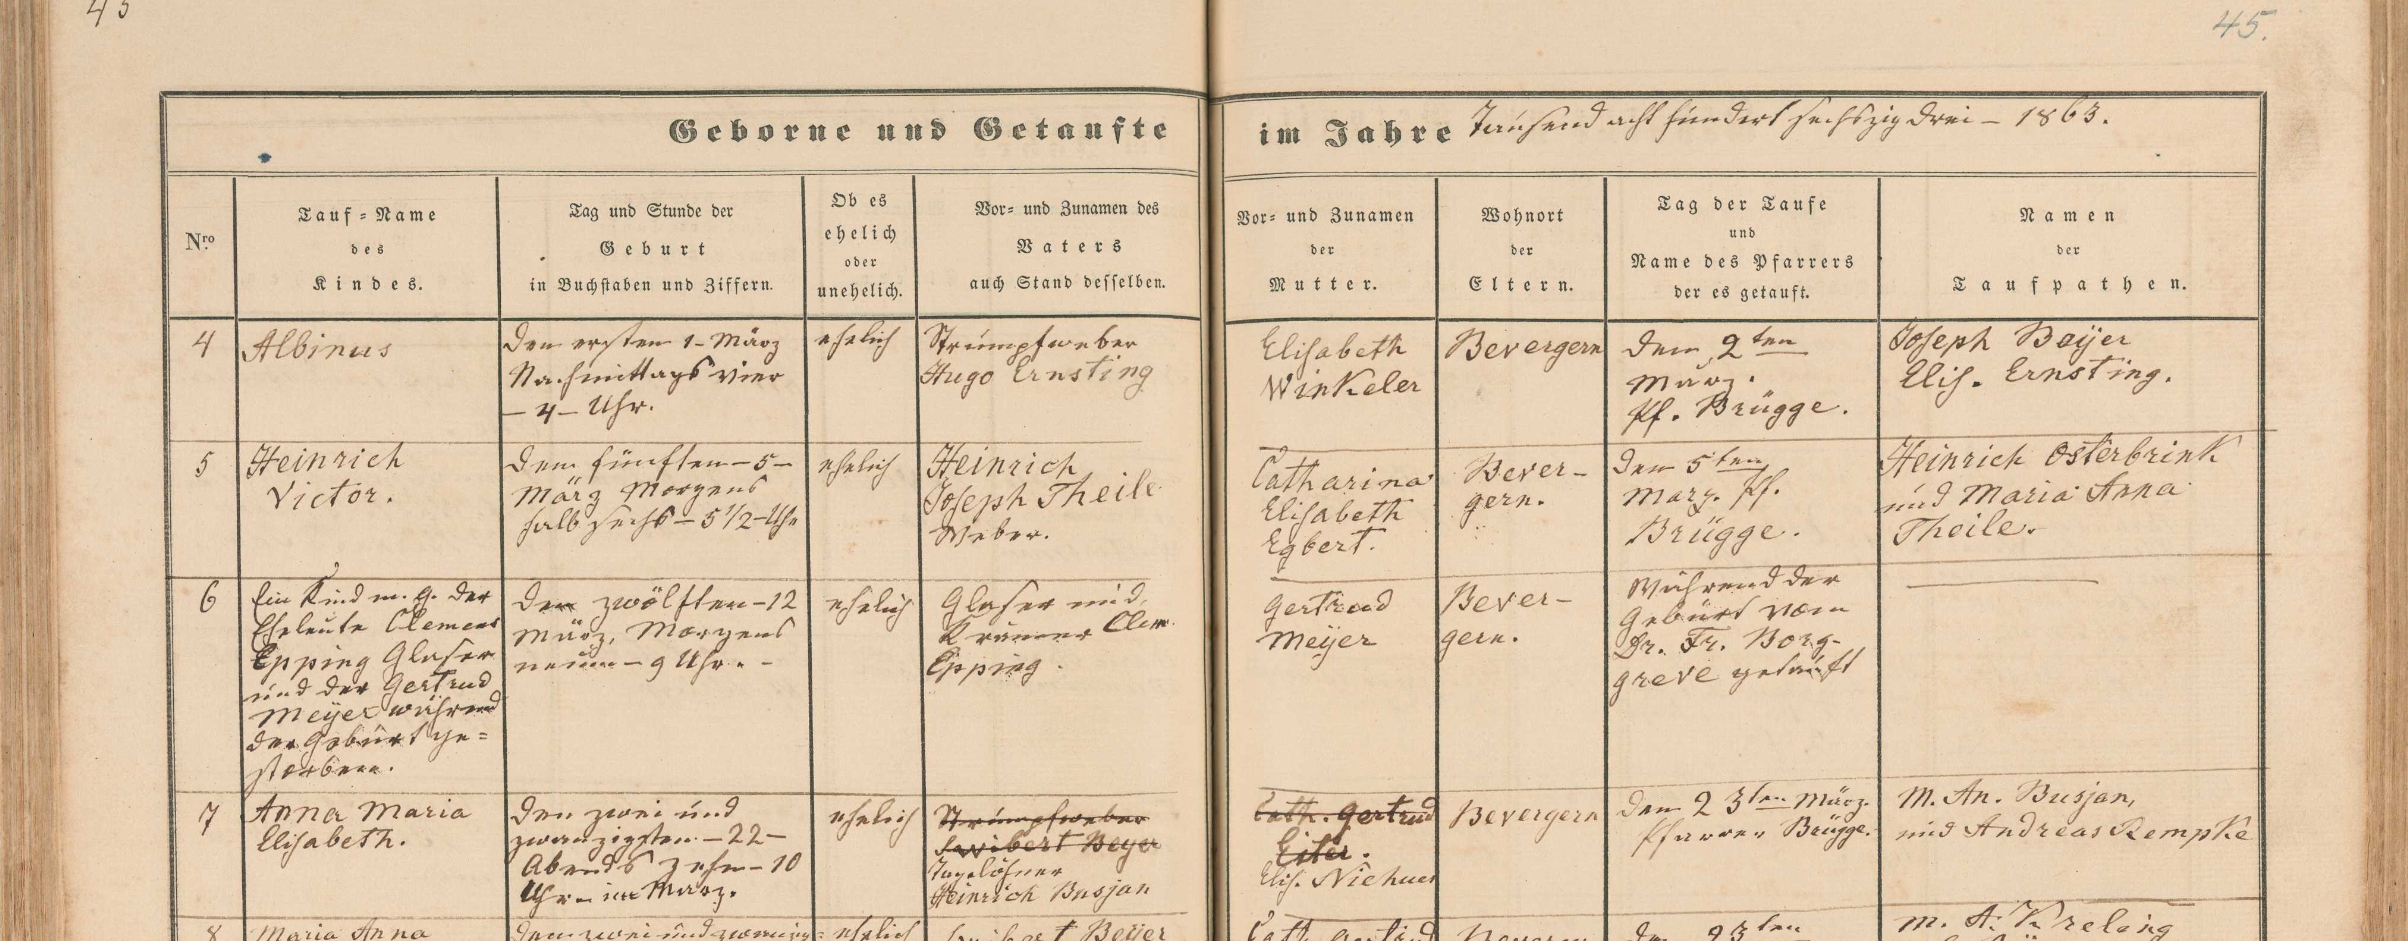 45
45.
Geborne und Getaufte im Jahre Tausend acht hundert sechszig drei – 1863.
Nro
Tauf=Name
des
Kindes.
Tag und Stunde der
Geburt
in Buchstaben und Ziffern.
Ob es
ehelich
oder
unehelich.
Vor= und Zunamen des
Vaters
auch Stand desselben.
Vor= und Zunamen
der
Mutter.
Wohnort
der
Eltern.
Tag der Taufe
und
Name des Pfarrers
der es getauft.
Namen
der
Taufpathen.
4
Albinus
Den ersten 1– März
Nachmittags vier
– 4 – Uhr.
ehelich
Strumpfweber
Hugo Ernsting
Elisabeth
Winkeler
Bevergern
Den 2ten
März.
Pf. Brügge.
Joseph Beÿer
Elis. Ernsting.
5
Heinrich
Victor.
Den fünften – 5 –
März Morgens
halb sechs – 5 1/2 – Uhr
ehelich
Heinrich
Joseph Theile
Weber.
Catharina
Elisabeth
Egbert.
Bever-
gern.
Den 5ten
März. Pf.
Brügge.
Heinrich Osterbrink
und Maria Anna
Theile.
6
Ein Kind m. g. der
Eheleute Clemens
Epping Glaser
und der Gertrud
Meÿer während
der Geburt ge=
storben.
Den zwölften – 12
März, Morgens
neun – 9 Uhr. –
ehelich
Glaser und
Krämer Clem.
Epping.
Gertrud
Meÿer
Bever-
gern.
Während der
Geburt vom
Dr. Fr. Borg-
greve getauft
7
Anna Maria
Elisabeth.
Den zwei und
zwanzigsten – 22 –
Abends zehn – 10
Uhr – im März.
ehelich
Strumpfweber
Swibert Beyer
Tagelöhner
Heinrich Busjan
Cath. Gertrud
Eiler.
Elis. Niehues
Bevergern
Den 23ten März.
Pfarrer Brügge.
M. An. Busjan,
und Andreas Rempke
8
Maria Anna
Den zwei und zwanzig=
ehelich
Swibert Beÿer
Cath. Gertrud
Bevergern
Den 23ten
M. A. Kreling